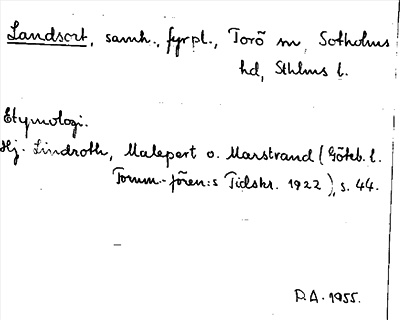 Landsort, samh., fyrpl., Torö sn, Sotholms
hd, Sthlms l.
Etymologi.
Hj. Lindroth, Malepert o. Marstrand (Göteb. l.
Fornm.-fören:s Tidskr. 1922), s. 44.
P.A. 1955.